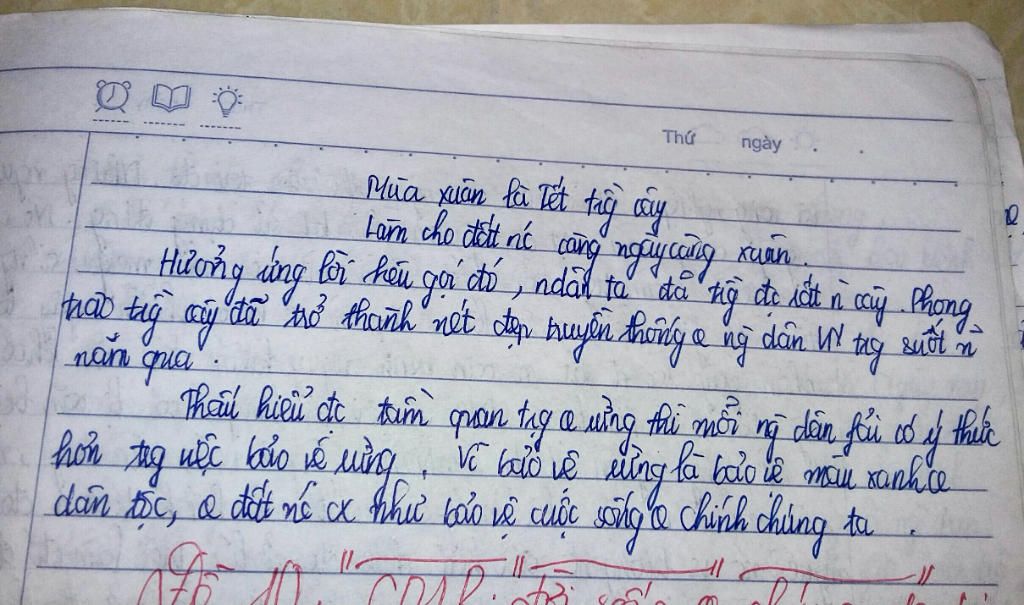 Thứ ngày
Mùa xuân là Tết tr̀g cây
Làm cho đất nc càng ngày càng xuân.
Hưởng ứng lời kêu gọi đó, ndân ta đã tr̀g đc rất ǹ cây. Phong
trào tr̀g cây đã trở thành nét đẹp truyền thống @ ng dân VN trg suốt ǹ
năm qua.
Thấu hiểu đc tầm quan trg @ rừng thì mỗi ng dân fải có ý thức
hơn trg việc bảo vệ rừng. Vì bảo vệ rừng là bảo vệ màu xanh @
dân tộc, @ đất nc cx như bảo vệ cuộc sống @ chính chúng ta.
Đề 10: